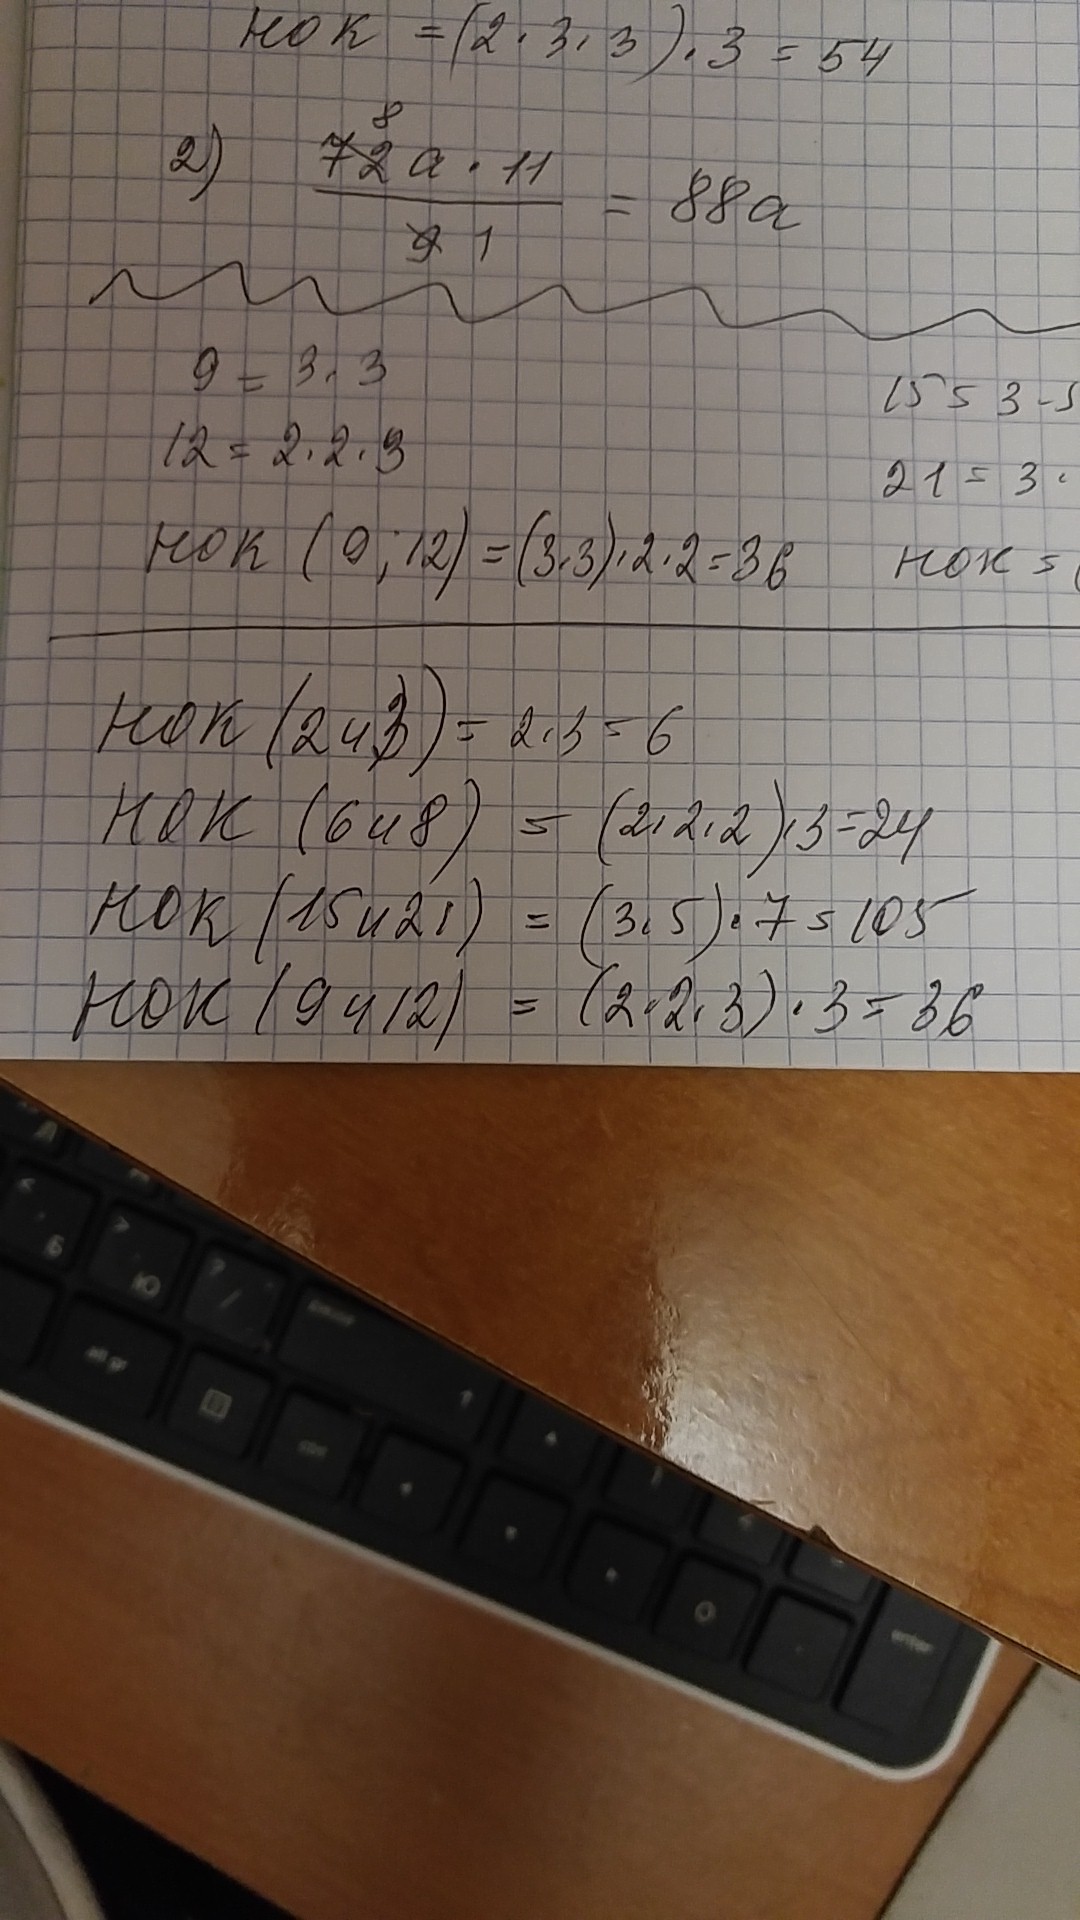 НОК = (2·3·3)·3 = 54
8
2) 72а·11 = 88а
9 1
9 = 3·3
12 = 2·2·3
НОК (9;12) = (3·3)·2·2 = 36
15 = 3·5
21 = 3·
НОК = (
НОК (2 и 3) = 2·3 = 6
НОК (6 и 8) = (2·2·2)·3 = 24
НОК (15 и 21) = (3·5)·7 = 105
НОК (9 и 12) = (2·2·3)·3 = 36
< , Б
> . Ю
? /
alt gr
ctrl
0
enter